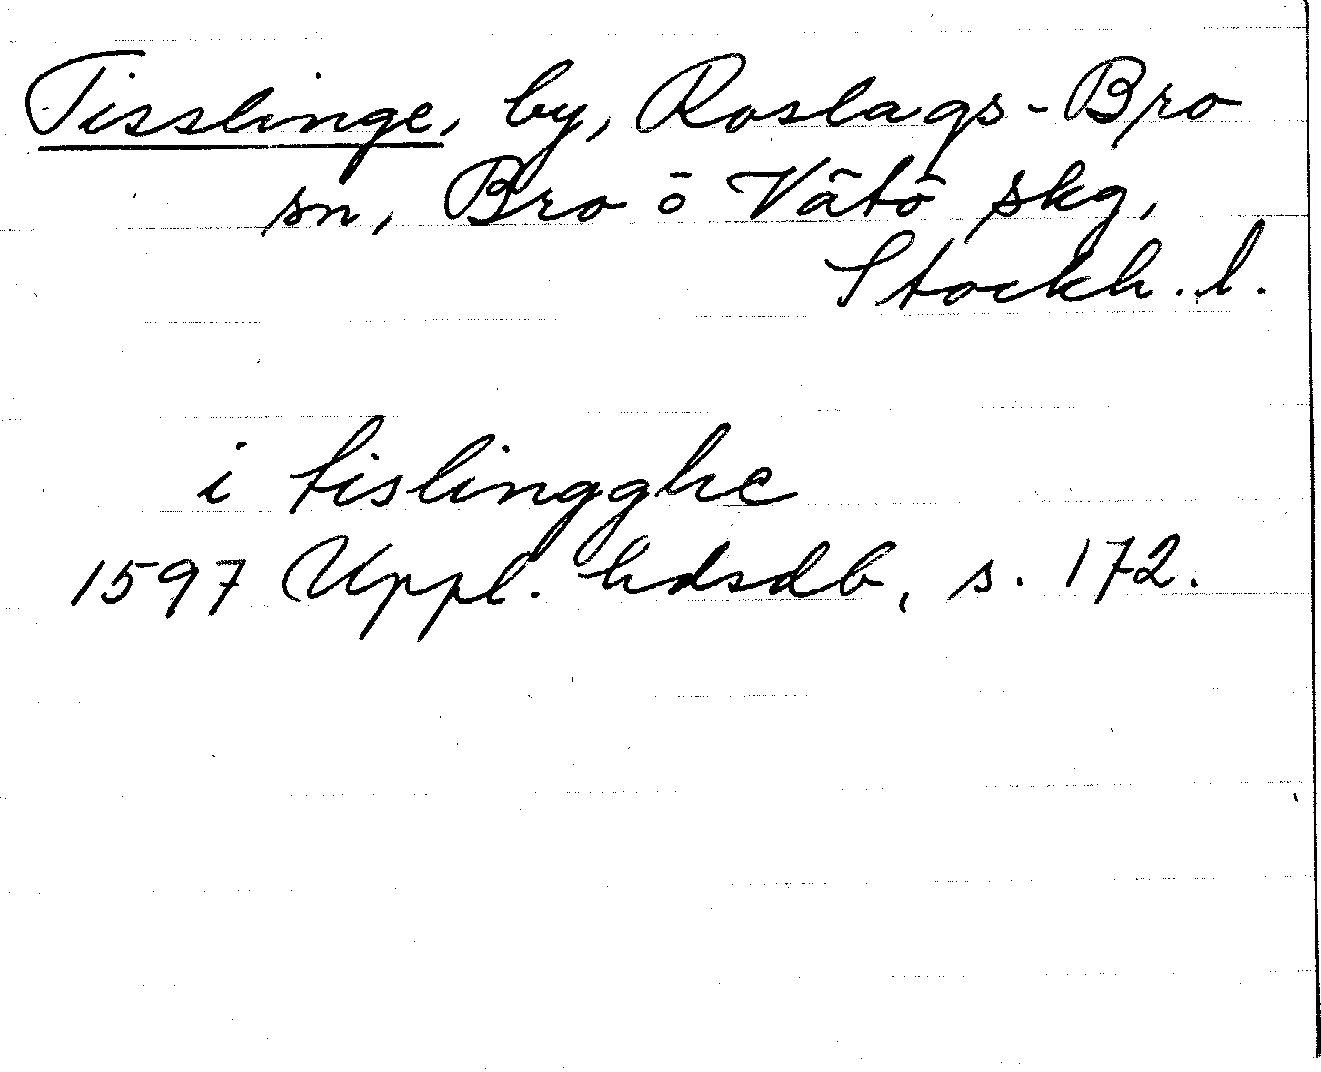 Tisslinge, by, Roslags-Bro
sn, Bro ö Vätö skg,
Stockh. l.
i tislingghe
1597 Uppl. hdsdb, s. 172.